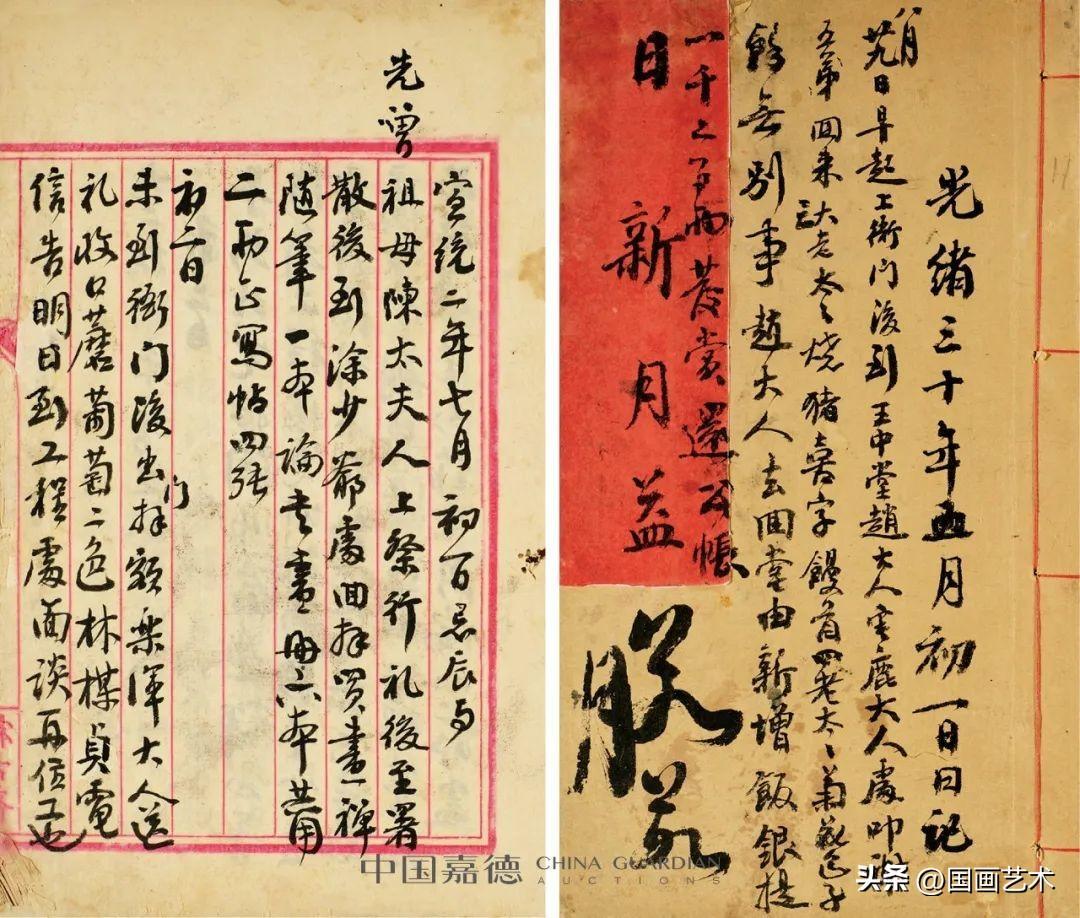 光緒三十年五月初一日日記
八月
廿九日早起上衙门後到王中堂趙大人鹿大人處叩
五弟回来老太太燒猪壽字饅首四老太太菊
餘無别事趙大人去回堂由新增飯銀提
一千二百兩發賞還公帳
日新月益
宣統二年七月初一日忌辰
先曾祖母陳太夫人上祭行礼後至署
散後到涂少爺處回拜買畫禅
随筆一本論書畫冊六本共用
二兩正寫帖四張
初二日
未到衙门後出门拜額樂渾大人送
礼收口蘑葡萄二色林楳貞電
信告明日到工程處面談再
中国嘉德 CHINA GUARDIAN
AUCTIONS
头条 @国画艺术